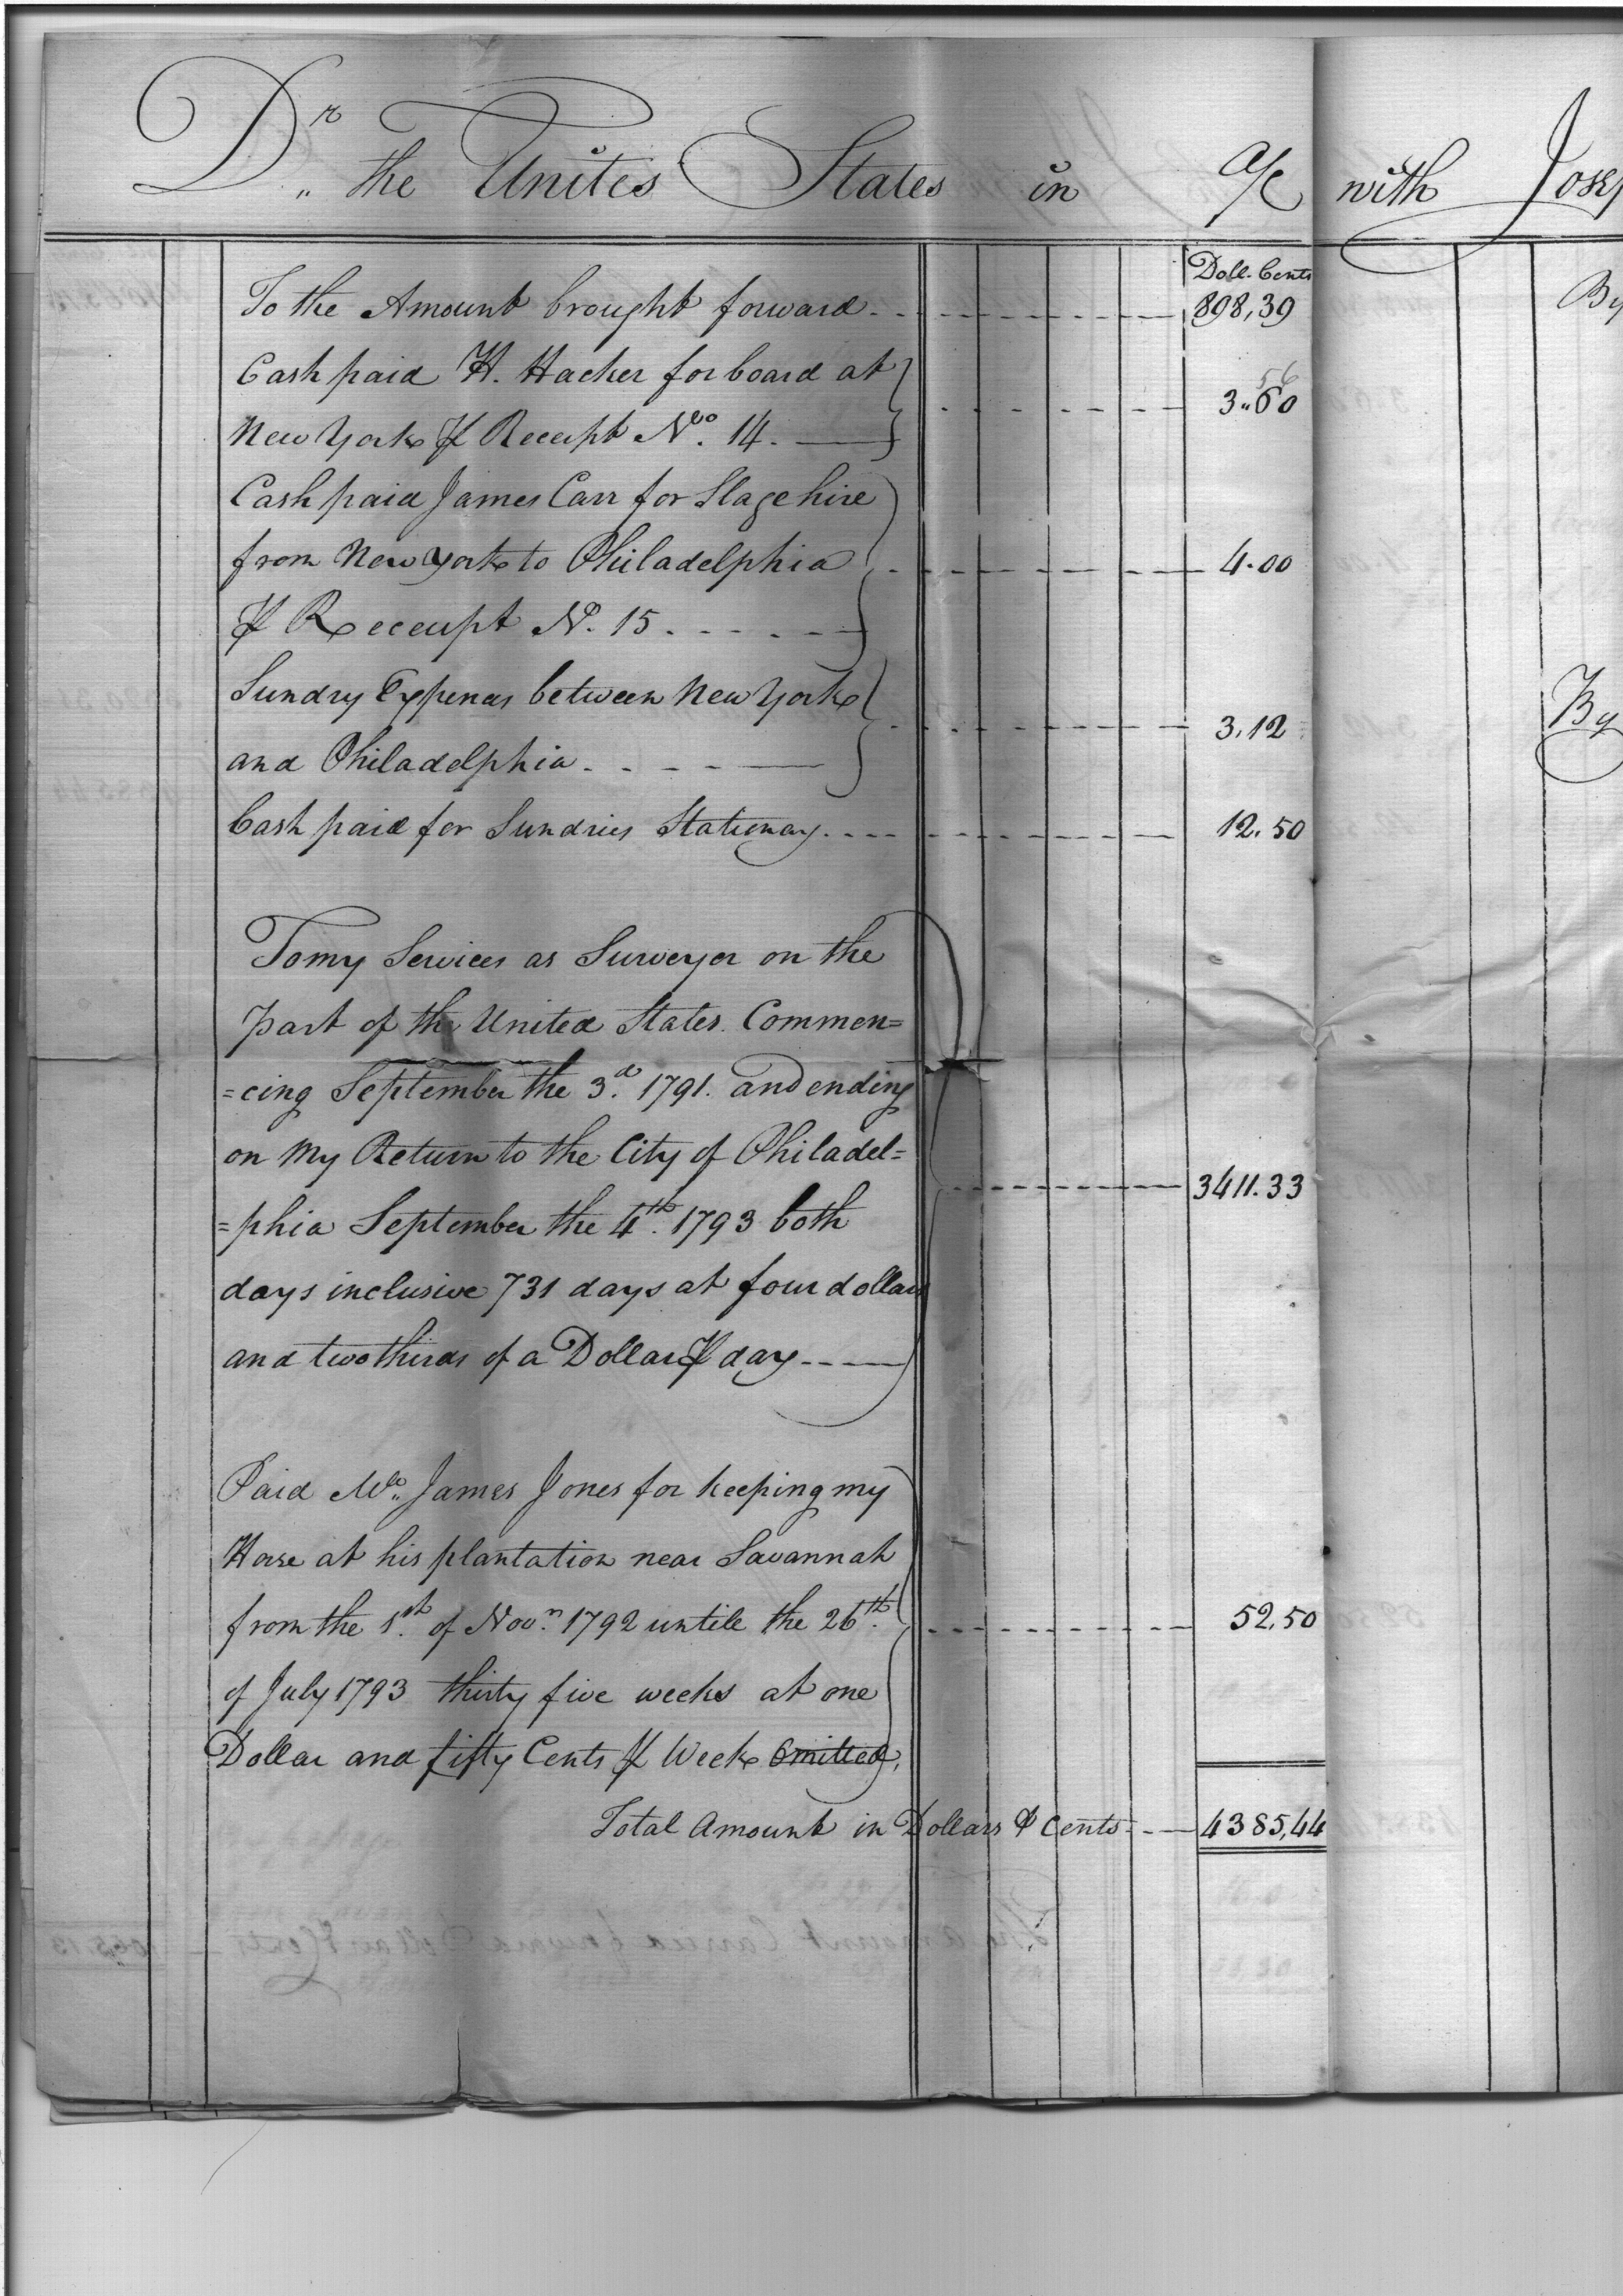 Dr. the United States in a/c with Josep
Doll. Cents
To the Amount brought forward 898,39
By
Cash paid H. Hacker for board at
56
3.60
New York ⅌ Receipt No. 14.
Cash paid James Carr for Stage hire
from New york to Philadelphia 4.00
⅌ Receeipt No. 15
Sundry Expences between New York
3.12
By
and Philadelphia
Cash paid for Sundries Stationary 12.50
To my Services as Surveyer on the
part of the United States. Commen=
=cing September the 3d. 1791. and ending
on my Return to the City of Philadel=
3411.33
=phia September the 4th. 1793 both
days inclusive 731 days at four dollars
and two thirds of a Dollar ⅌ day
Paid Mr. James Jones for keeping my
Horse at his plantation near Savannah
from the 1st. of Novr. 1792 untile the 26th. 52,50
of July 1793 thirty five weeks at one
Dollar and fifty Cents ⅌ Week Omitted,
Total Amount in Dollars & Cents 4385,44